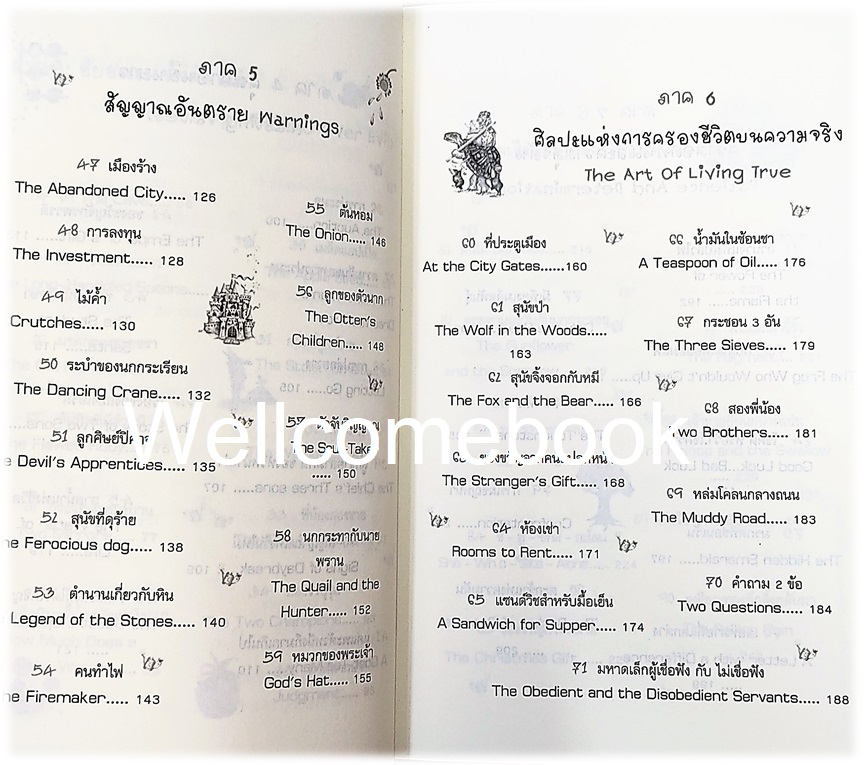 ภาค 5
สัญญาณอันตราย Warnings
47 เมืองร้าง
The Abandoned City..... 126
48 การลงทุน
The Investment..... 128
49 ไม้ค้ำ
Crutches..... 130
50 ระบำของนกกระเรียน
The Dancing Crane..... 132
51 ลูกศิษย์ปีศาจ
Devil's Apprentices..... 135
52 สุนัขที่ดุร้าย
Ferocious dog..... 138
53 ตำนานเกี่ยวกับหิน
Legend of the Stones..... 140
54 คนทำไฟ
Firemaker..... 143
55 ต้นหอม
The Onion..... 146
56 ลูกของตัวนาก
The Otter's
Children..... 148
57
The Soul Take
..... 150
58 นกกระทากับนาย
พราน
The Quail and the
Hunter..... 152
59 หมวกของพระเจ้า
God's Hat..... 155
ภาค 6
ศิลปะแห่งการครองชีวิตบนความจริง
The Art Of Living True
60 ที่ประตูเมือง
At the City Gates......160
61 สุนัขป่า
The Wolf in the Woods.....
163
62 สุนัขจิ้งจอกกับหมี
The Fox and the Bear..... 166
The Stranger's Gift..... 168
64 ห้องเช่า
Rooms to Rent..... 171
65 แซนด์วิชสำหรับมื้อเย็น
A Sandwich for Supper..... 174
66 น้ำมันในช้อนชา
A Teaspoon of Oil..... 176
67 กระชอน 3 อัน
The Three Sieves..... 179
68 สองพี่น้อง
Two Brothers..... 181
69 หล่มโคลนกลางถนน
The Muddy Road..... 183
70 คำถาม 2 ข้อ
Two Questions..... 184
71 มหาดเล็กผู้เชื่อฟัง กับ ไม่เชื่อฟัง
The Obedient and the Disobedient Servants..... 188
Wellcomebook